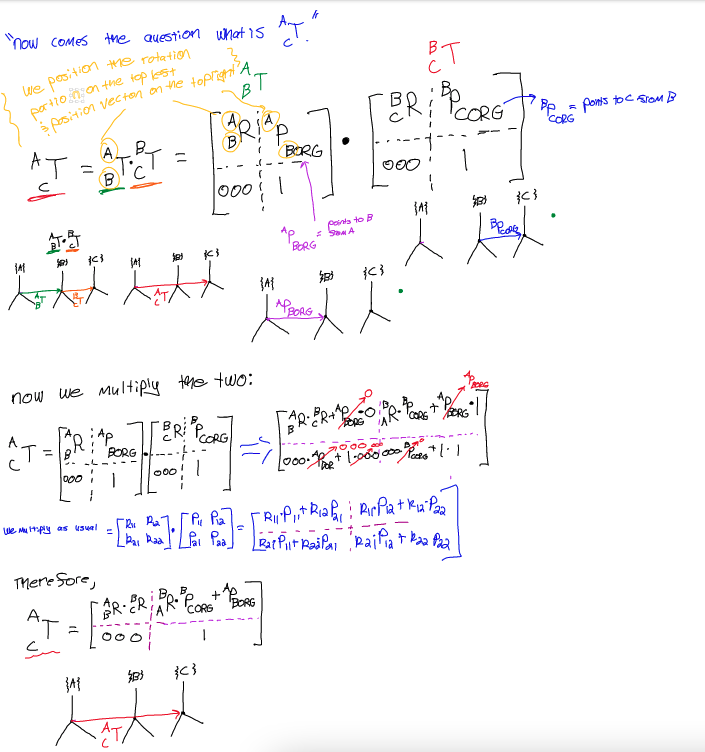 "now comes the question what is ᴬ_C T."
we position the rotation
portion on the top left
& position vector on the topright
ᴬ_B T
ᴮ_C T
ᴬ_C T = ᴬ_B T · ᴮ_C T = [ ᴬ_B R ᴬP_BORG ] · [ ᴮ_C R ᴮP_CORG ]
000 1 000 1
ᴮP_CORG = points to C from B
ᴬP_BORG = points to B from A
{A} {B} {C}
ᴮP_CORG
ᴬ_B T · ᴮ_C T
{A} {B} {C}
ᴬ_B T ᴮ_C T
{A} {B} {C}
ᴬ_C T
{A} {B} {C}
ᴬP_BORG
now we multiply the two:
ᴬ_C T = [ ᴬ_B R ᴬP_BORG ] · [ ᴮ_C R ᴮP_CORG ] => [ ᴬ_B R · ᴮ_C R + ᴬP_BORG · 0 ᴮ_A R · ᴮP_CORG + ᴬP_BORG · 1 ]
0
ᴬP_BORG
000 1 000 1 000 · ᴬP_BOR + 1 · 000 000 · ᴮP_CORG + 1 · 1
000
we multiply as usual = [ R11 R12 ] · [ P11 P12 ] = [ R11·P11 + R12P21 R11·P12 + R12·P22 ]
R21 R22 P21 P22 R21P11 + R22P21 R21P12 + R22 P22
Therefore,
ᴬ_C T = [ ᴬ_B R · ᴮ_C R ᴮ_A R · ᴮP_CORG + ᴬP_BORG ]
000 1
{A} {B} {C}
ᴬ_C T